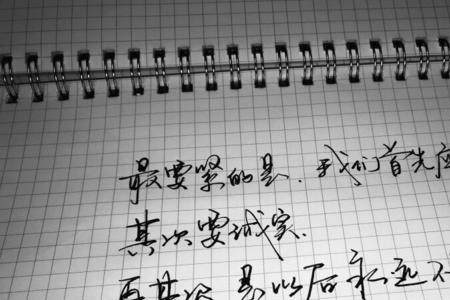 最要紧的是,我们首先应
其次要诚实,
再其次是以后永远不